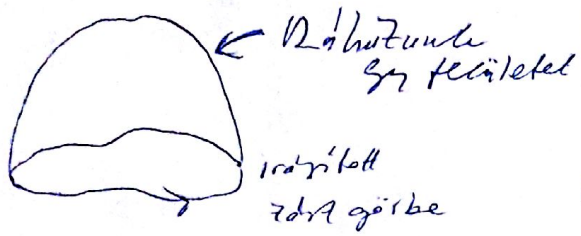 Ráhúzunk
egy felületet
irányított
zárt görbe